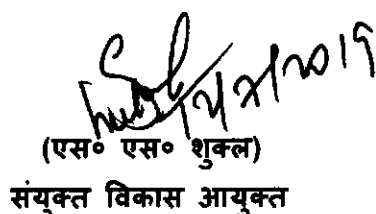 (एस० एस० शुक्ल)
संयुक्त विकास आयुक्त